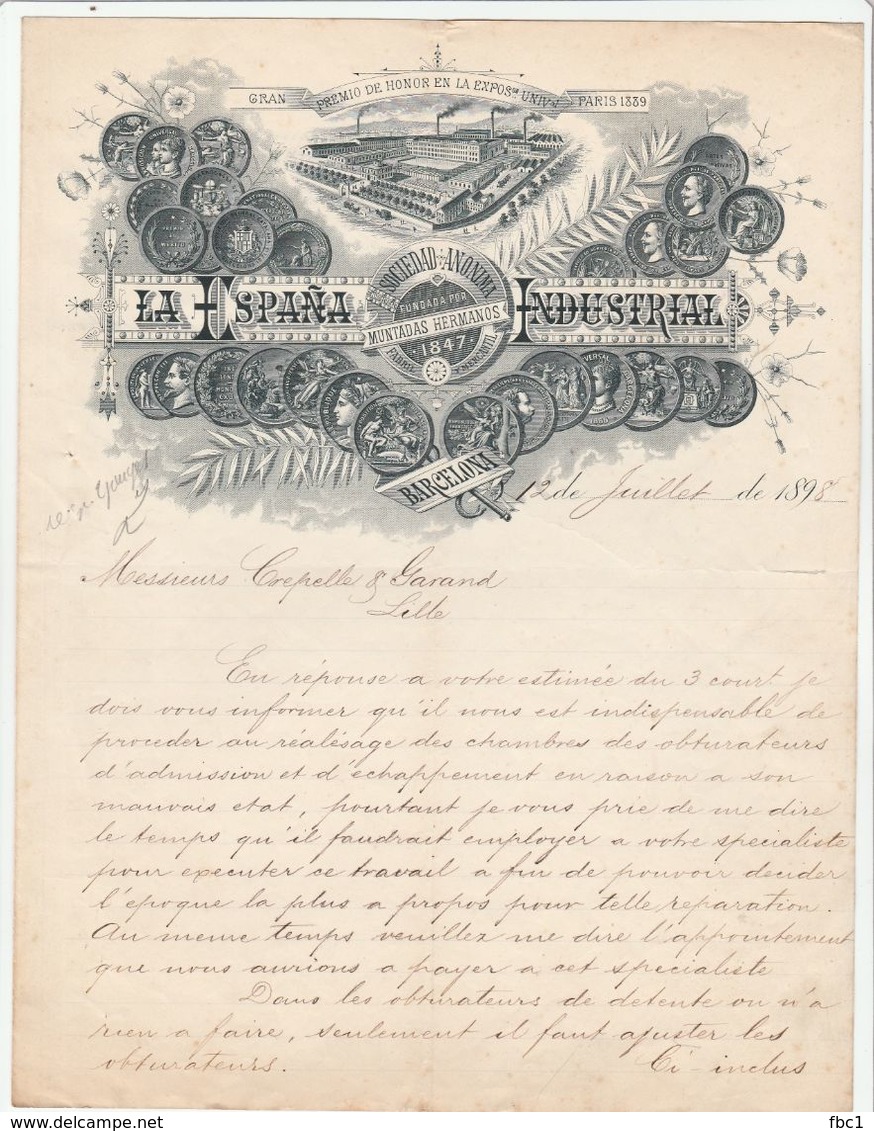 GRAN PREMIO DE HONOR EN LA EXPOSon UNIVal PARIS 1889
SOCIEDAD ANONIMA
FUNDADA POR
LA ESPAÑA MUNTADAS HERMANOS INDUSTRIAL
1847
BARCELONA
12 de Juillet de 1898
Messieurs Crepelle & Garand
Lille
En réponse a votre estimée du 3 court. je
dois vous informer qu'il nous est indispensable de
proceder au réalésage des chambres des obturateurs
d'admission et d'echappement en raison a son
mauvais etat, pourtant je vous prie de me dire
le temps qu'il faudrait employer a votre specialiste
pour executer ce travail a fin de pouvoir decider
l'epoque la plus a propos pour telle reparation.
Au meme temps veuillez me dire l'appointement
que nous aurions a payer a cet specialiste
Dans les obturateurs de detente on n'a
rien a faire, seulement il faut ajuster les
obturateurs. Ci-inclus
www.delcampe.net
fbc1